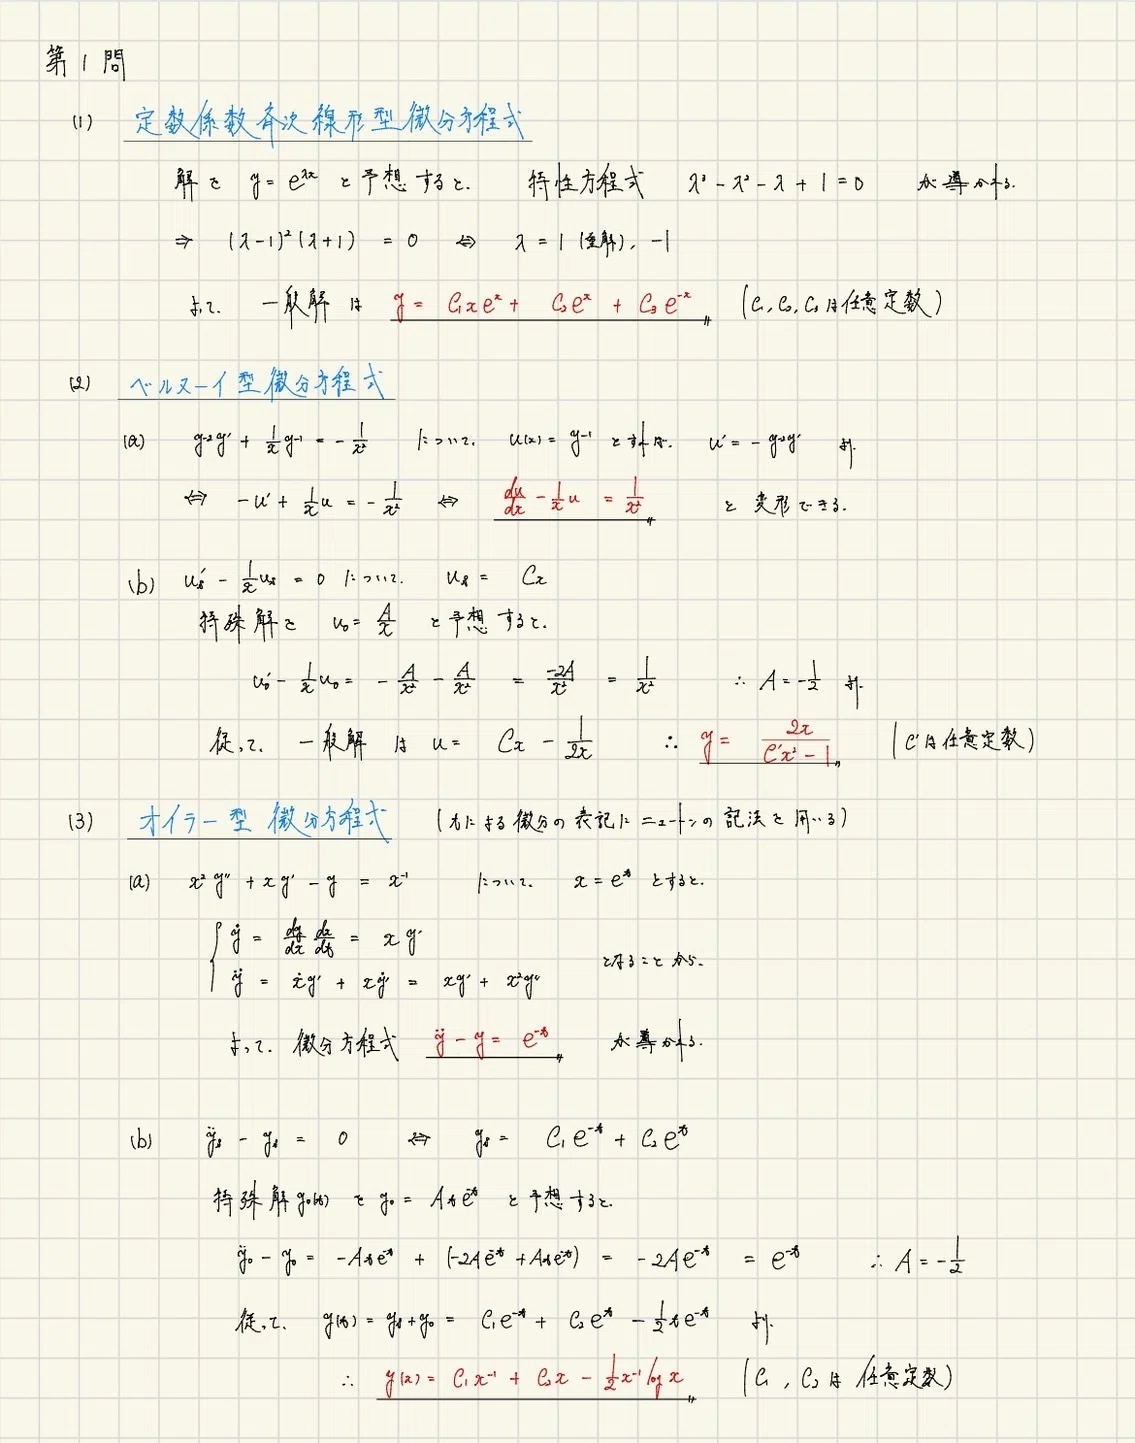 第1問
(1) 定数係数斉次線形型微分方程式
解を y = e^{λx} と予想すると、 特性方程式 λ³ - λ² - λ + 1 = 0 が導かれる.
⇒ (λ-1)²(λ+1) = 0 ⇔ λ = 1 (重解), -1
よって、 一般解は y = C₁xe^x + C₂e^x + C₃e^{-x} 〃 (C₁, C₂, C₃は任意定数)
(2) ベルヌーイ型微分方程式
(a) y⁻²y' + 1/x y⁻¹ = - 1/x² について、 u(x) = y⁻¹ とすれば、 u' = -y⁻²y' より.
⇔ -u' + 1/x u = - 1/x² ⇔ du/dx - 1/x u = 1/x² 〃 と変形できる.
(b) u_s' - 1/x u_s = 0 について、 u_s = Cx
特殊解を u₀ = A/x と予想すると、
u₀' - 1/x u₀ = - A/x² - A/x² = -2A/x² = 1/x² ∴ A = -1/2 より.
従って、 一般解は u = Cx - 1/2x ∴ y = 2x/(C'x² - 1) 〃 (C'は任意定数)
(3) オイラー型微分方程式 (tによる微分の表記にニュートンの記法を用いる)
(a) x²y'' + xy' - y = x⁻¹ について、 x = e^t とすると、
{ ẏ = dy/dx dx/dt = xy'
ÿ = ẋy' + xẏ' = xy' + x²y'' となることから、
よって、 微分方程式 ÿ - y = e^{-t} 〃 が導かれる.
(b) ÿ_s - y_s = 0 ⇔ y_s = C₁e^{-t} + C₂e^t
特殊解y₀(t) を y₀ = Ate^{-t} と予想すると、
ÿ₀ - y₀ = -Ate^{-t} + (-2Ae^{-t} + Ate^{-t}) = -2Ae^{-t} = e^{-t} ∴ A = -1/2
従って、 y(t) = y_s + y₀ = C₁e^{-t} + C₂e^t - 1/2 te^{-t} より.
∴ y(x) = C₁x⁻¹ + C₂x - 1/2 x⁻¹ log x 〃 (C₁, C₂は任意定数)